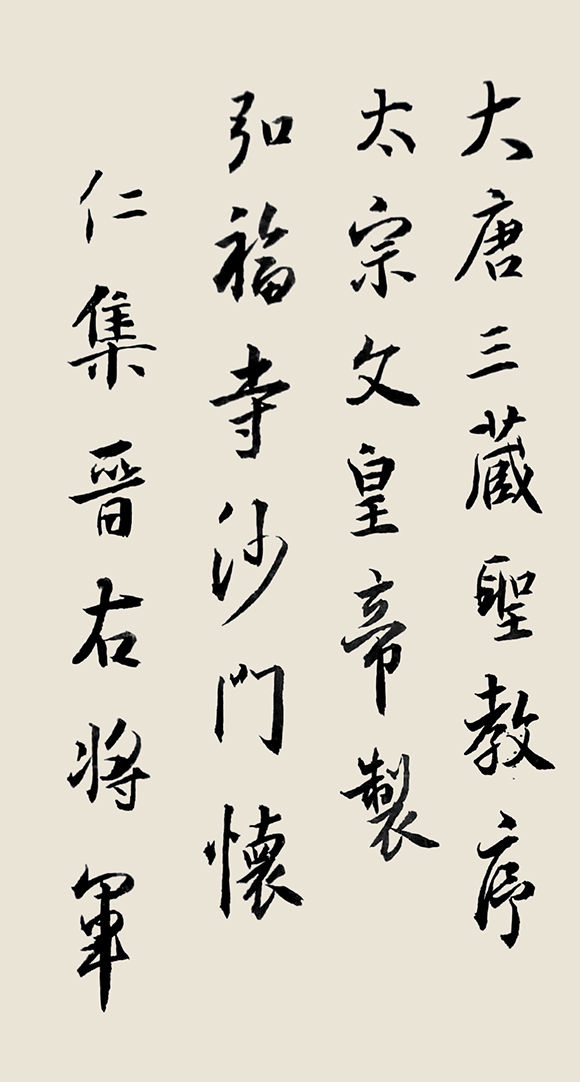 大唐三蔵聖教序
太宗文皇帝製
弘福寺沙門懷
仁集晉右将軍